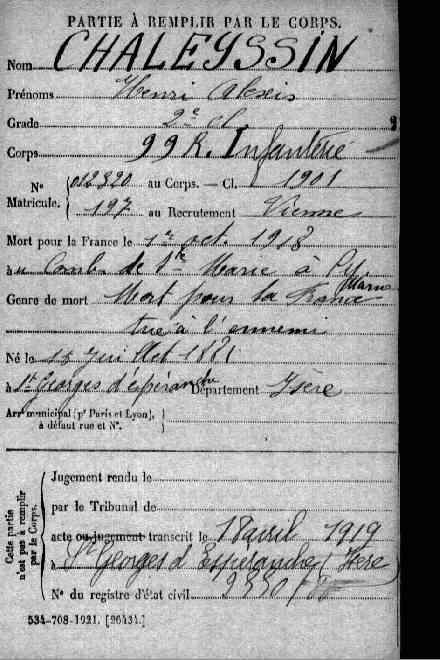 PARTIE À REMPLIR PAR LE CORPS.
Nom CHALEYSSIN
Prénoms Henri Alexis
Grade 2e cl
Corps 99 R. Infanterie
No Matricule. 012820 au Corps. — Cl. 1901
197 au Recrutement Vienne
Mort pour la France le 1er oct. 1918
à de Ste Marie à Py Marne
Genre de mort Mort pour la France
tué à l'ennemi
Né le 15 Juillet 1881
à St Georges d'espéranche Département Isère
Arrt municipal (pr Paris et Lyon),
à défaut rue et No.
Cette partie n'est pas à remplir par le Corps.
Jugement rendu le
par le Tribunal de
acte ou jugement transcrit le 18 avril 1919
à St Georges d'Espéranche (Isère)
No du registre d'état civil
534-708-1921. [26434.]